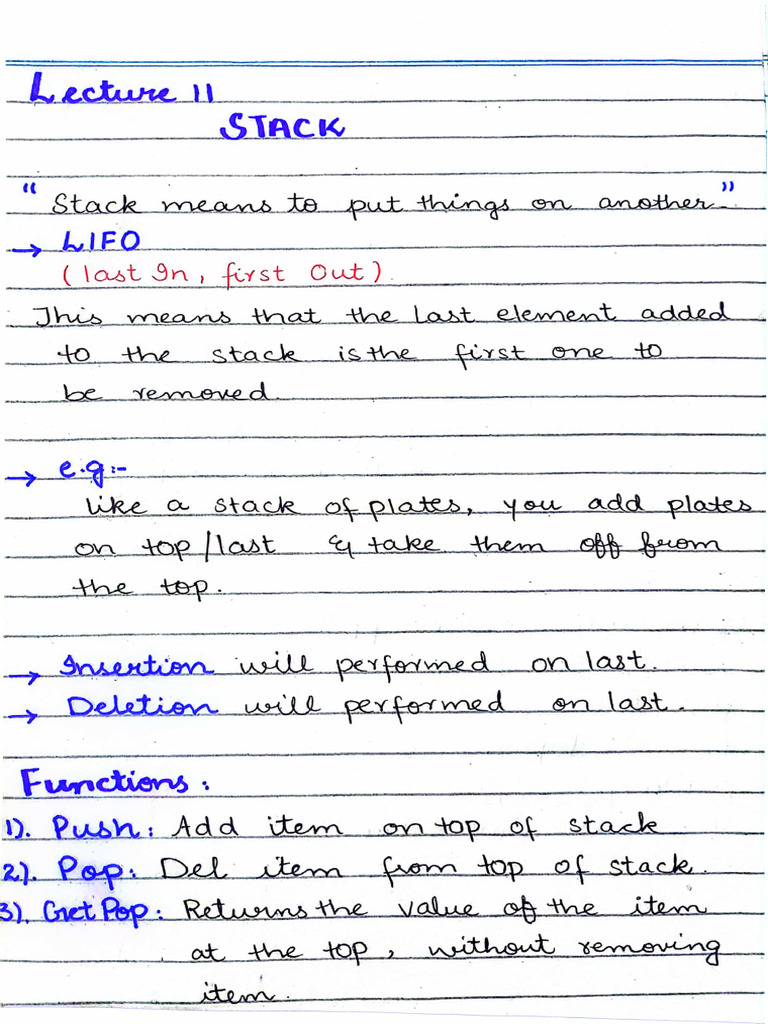 Lecture 11
STACK
" Stack means to put things on another "
→ LIFO
(last In, first Out)
This means that the last element added
to the stack is the first one to
be removed.
→ e.g:-
like a stack of plates, you add plates
on top/last & take them off from
the top.
→ Insertion will performed on last.
→ Deletion will performed on last.
Functions:
1). Push: Add item on top of stack
2). Pop: Del item from top of stack.
3). GetPop: Returns the value of the item
at the top, without removing
item.